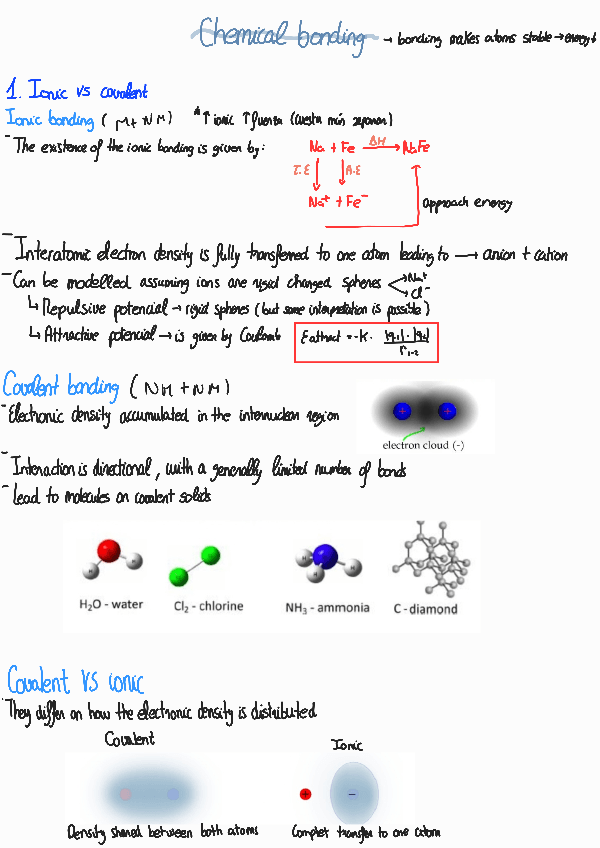 Chemical bonding → bonding makes atoms stable → energy↓
1. Ionic vs covalent
Ionic bonding (M + NM) *↑ ionic ↑ fuerza (cuesta más separar)
- The existence of the ionic bonding is given by:
Na + Fe ΔH→ NaFe
I.E A.E
Na⁺ + Fe⁻
approach energy
- Interatomic electron density is fully transferred to one atom leading to → anion + cation
- Can be modelled assuming ions are rigid charged spheres Na⁺
Cl⁻
↳ Repulsive potencial → rigid spheres (but some interpretation is possible)
↳ Attractive potencial → is given by Coulomb E attract = -k · |q₁|·|q₂| / r₁₋₂
Covalent bonding (NM + NM)
- Electronic density accumulated in the internuclear region
+ +
electron cloud (-)
- Interaction is directional, with a generally limited number of bonds
- lead to molecules or covalent solids
H H H H H
H₂O - water Cl₂ - chlorine NH₃ - ammonia C - diamond
Covalent VS ionic
They differ on how the electronic density is distributed
Covalent Ionic
+ -
Density shared between both atoms Complet transfer to one atom